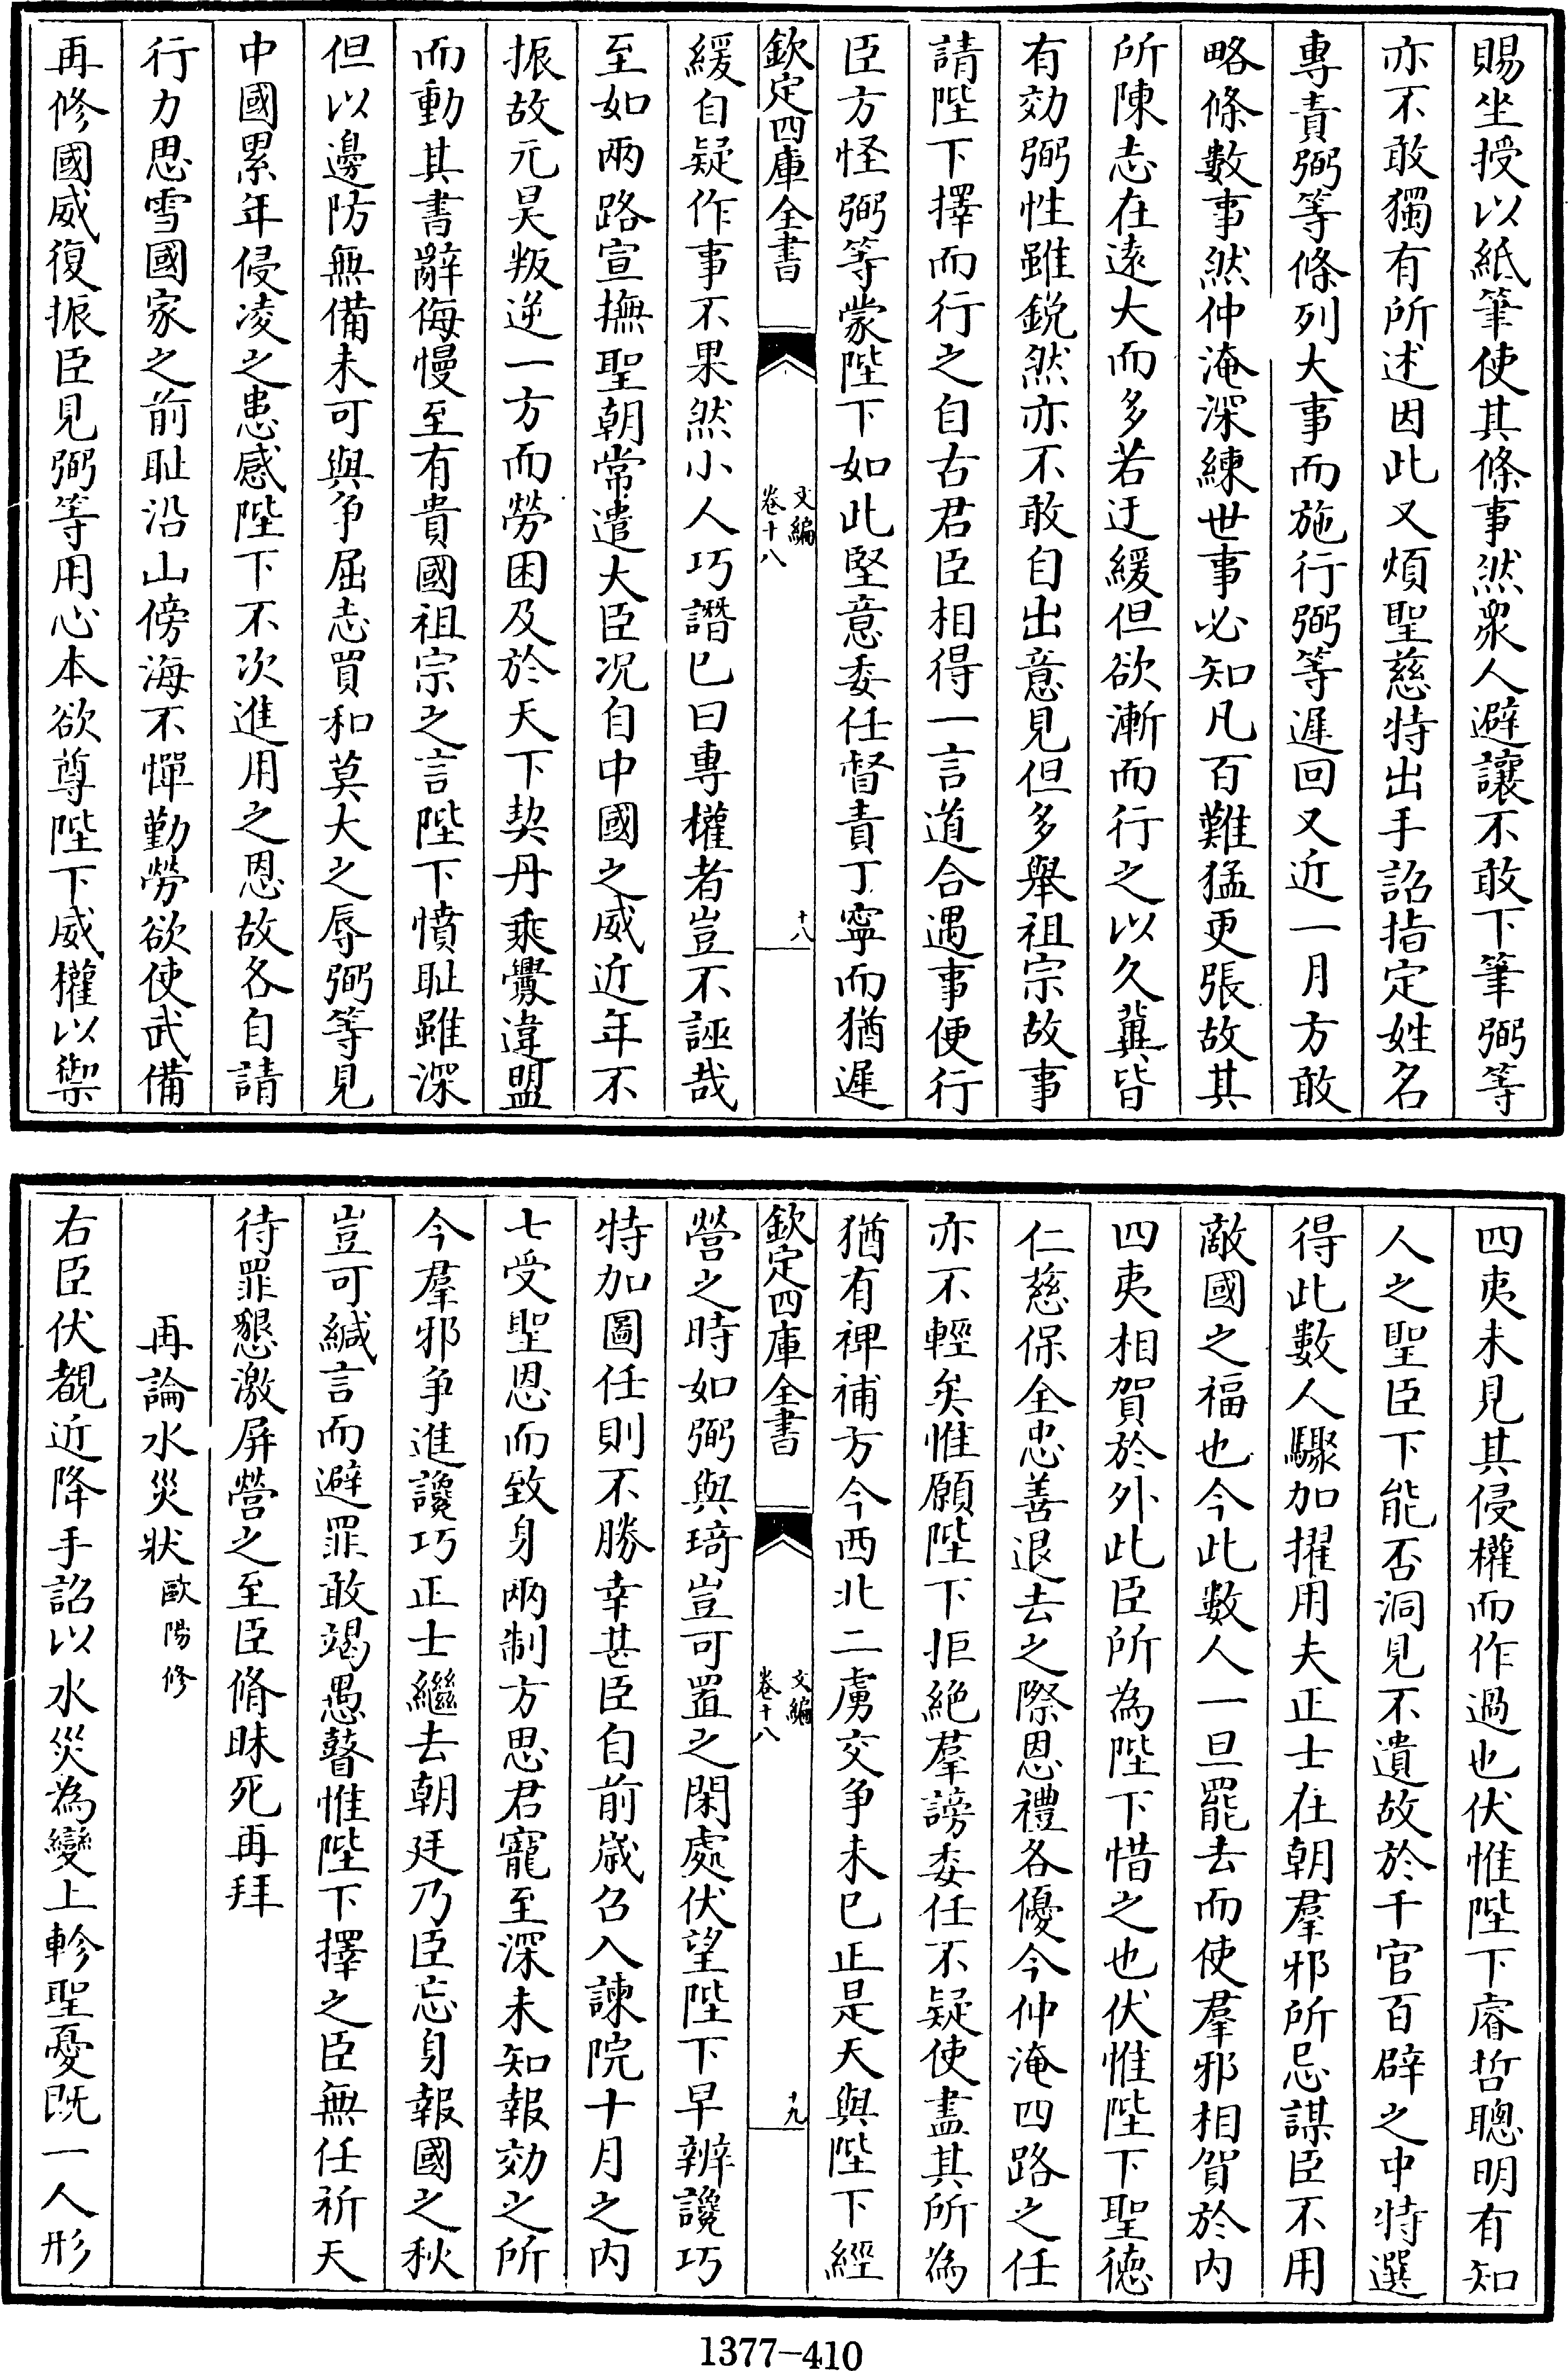 賜坐授以紙筆使其條事然衆人避讓不敢下筆弼等
亦不敢獨有所述因此又煩聖慈特出手詔指定姓名
專責弼等條列大事而施行弼等遲回又近一月方敢
略條數事然仲淹深練世事必知凡百難猛更張故其
所陳志在遠大而多若迂緩但欲漸而行之以久冀皆
有効弼性雖鋭然亦不敢自出意見但多舉祖宗故事
請陛下擇而行之自古君臣相得一言道合遇事便行
臣方怪弼等蒙陛下如此堅意委任督責丁寧而猶遲
欽定四庫全書
文編
卷十八
十八
緩自疑作事不果然小人巧譖已曰專權者豈不誣哉
至如兩路宣撫聖朝常遣大臣况自中國之威近年不
振故元昊叛逆一方而勞困及於天下契丹乘釁違盟
而動其書辭侮慢至有貴國祖宗之言陛下憤耻雖深
但以邊防無備未可與争屈志買和莫大之辱弼等見
中國累年侵凌之患感陛下不次進用之恩故各自請
行力思雪國家之前耻沿山傍海不憚勤勞欲使武備
再修國威復振臣見弼等用心本欲尊陛下威權以禦
四夷未見其侵權而作過也伏惟陛下睿哲聰明有知
人之聖臣下能否洞見不遺故於千官百辟之中特選
得此數人驟加擢用夫正士在朝羣邪所忌謀臣不用
敵國之福也今此數人一旦罷去而使羣邪相賀於内
四夷相賀於外此臣所為陛下惜之也伏惟陛下聖德
仁慈保全忠善退去之際恩禮各優今仲淹四路之任
亦不輕矣惟願陛下拒絶羣謗委任不疑使盡其所為
猶有裨補方今西北二虜交争未已正是天與陛下經
欽定四庫全書
文編
卷十八
十九
營之時如弼與琦豈可置之閑處伏望陛下早辨讒巧
特加圖任則不勝幸甚臣自前歲召入諫院十月之内
七受聖恩而致身兩制方思君寵至深未知報効之所
今羣邪争進讒巧正士繼去朝廷乃臣忘身報國之秋
豈可緘言而避罪敢竭愚瞽惟陛下擇之臣無任祈天
待罪懇激屏營之至臣脩昧死再拜
再論水災狀 歐陽修
右臣伏覩近降手詔以水災為變上軫聖憂既一人形
1377-410